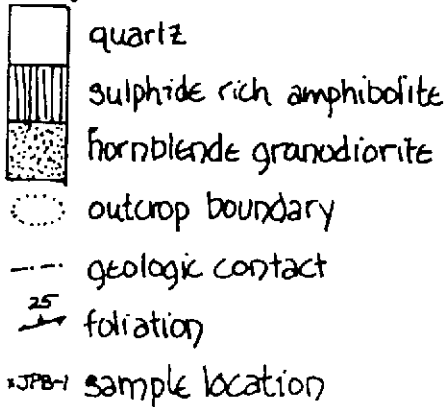 quartz
sulphide rich amphibolite
hornblende granodiorite
outcrop boundary
geologic contact
25 foliation
xJPB-1 sample location